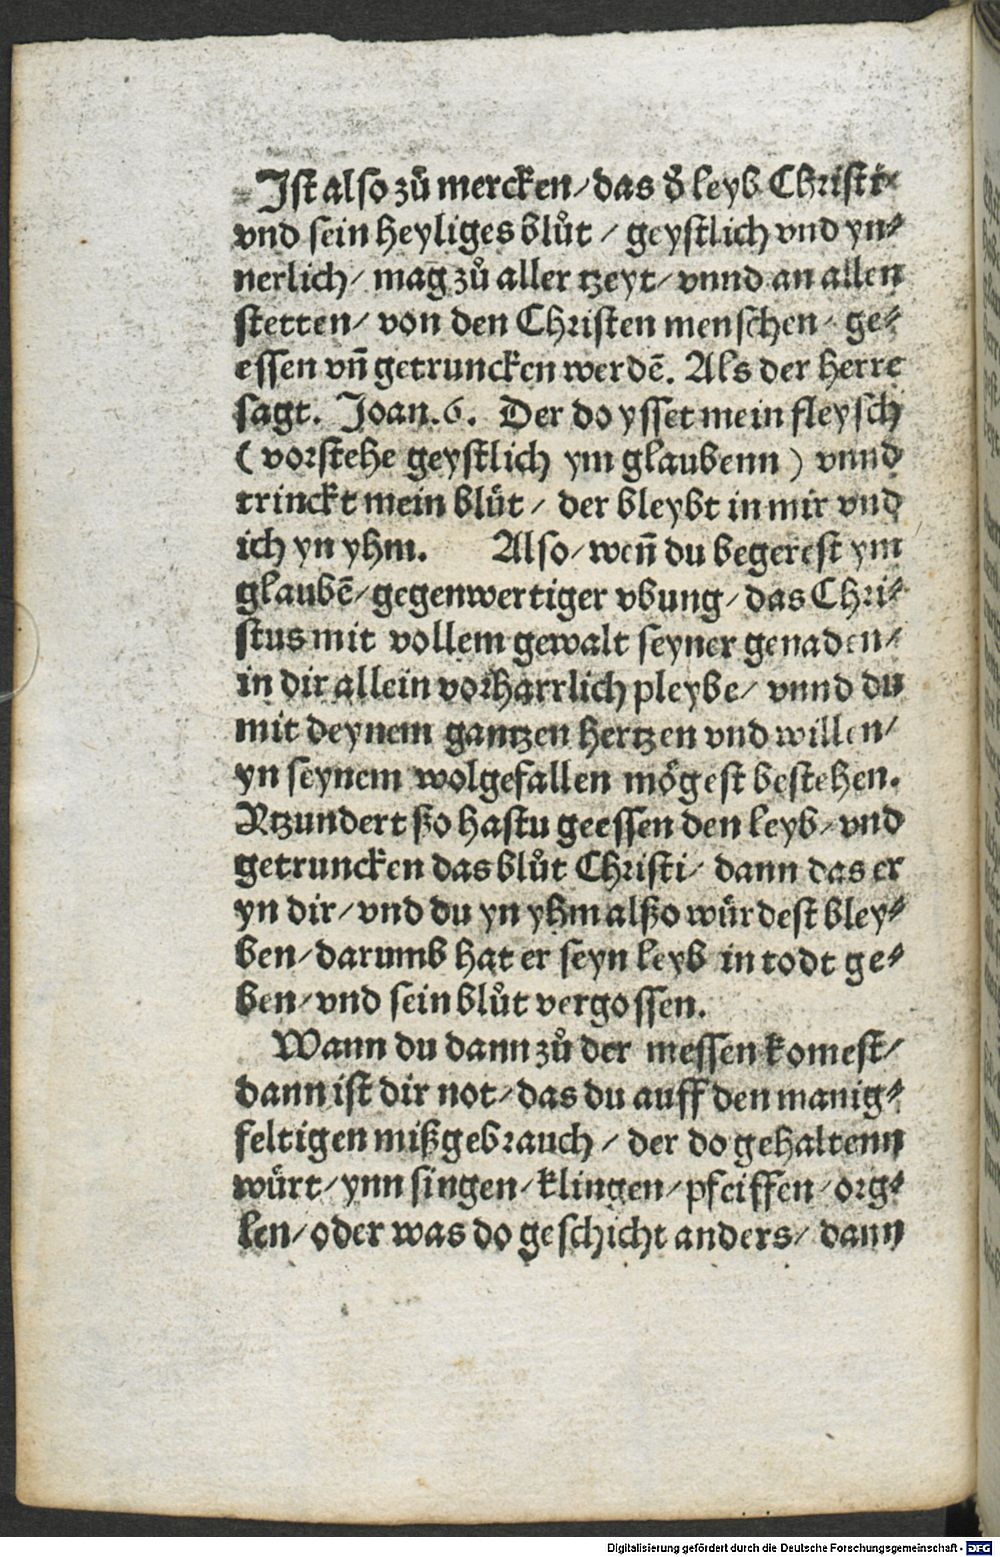 Ist also zů mercken / das d̕ leyb Christi
vnd sein heyliges blůt / geystlich vnd yn⸗
nerlich / mag zů aller tzeyt / vnnd an allen
stetten / von den Christen menschen / ge⸗
essen vn̄ getruncken werdē. Als der herre
sagt. Joan. 6. Der do ysset mein fleysch
( vorstehe geystlich ym glaubenn ) vnnd
trinckt mein blůt / der bleybt in mir vnd
ich yn yhm. Also / wen̄ du begerest ym
glaubē / gegenwertiger vbung / das Chri⸗
stus mit vollem gewalt seyner genaden /
in dir allein vorharrlich pleybe / vnnd du
mit deynem gantzen hertzen vnd willen /
yn seynem wolgefallen mögest bestehen.
Ytzundert ßo hastu geessen den leyb / vnd
getruncken das blůt Christi / dann das er
yn dir / vnd du yn yhm alßo würdest bley⸗
ben / darumb hat er seyn leyb in todt ge⸗
ben / vnd sein blůt vergossen.
Wann du dann zů der messen komest /
dann ist dir not / das du auff den manig⸗
feltigen mißgebrauch / der do gehaltenn
würt / ynn singen / klingen / pfeiffen / org⸗
len / oder was do geschicht anders / dann
Digitalisierung gefördert durch die Deutsche Forschungsgemeinschaft - DFG